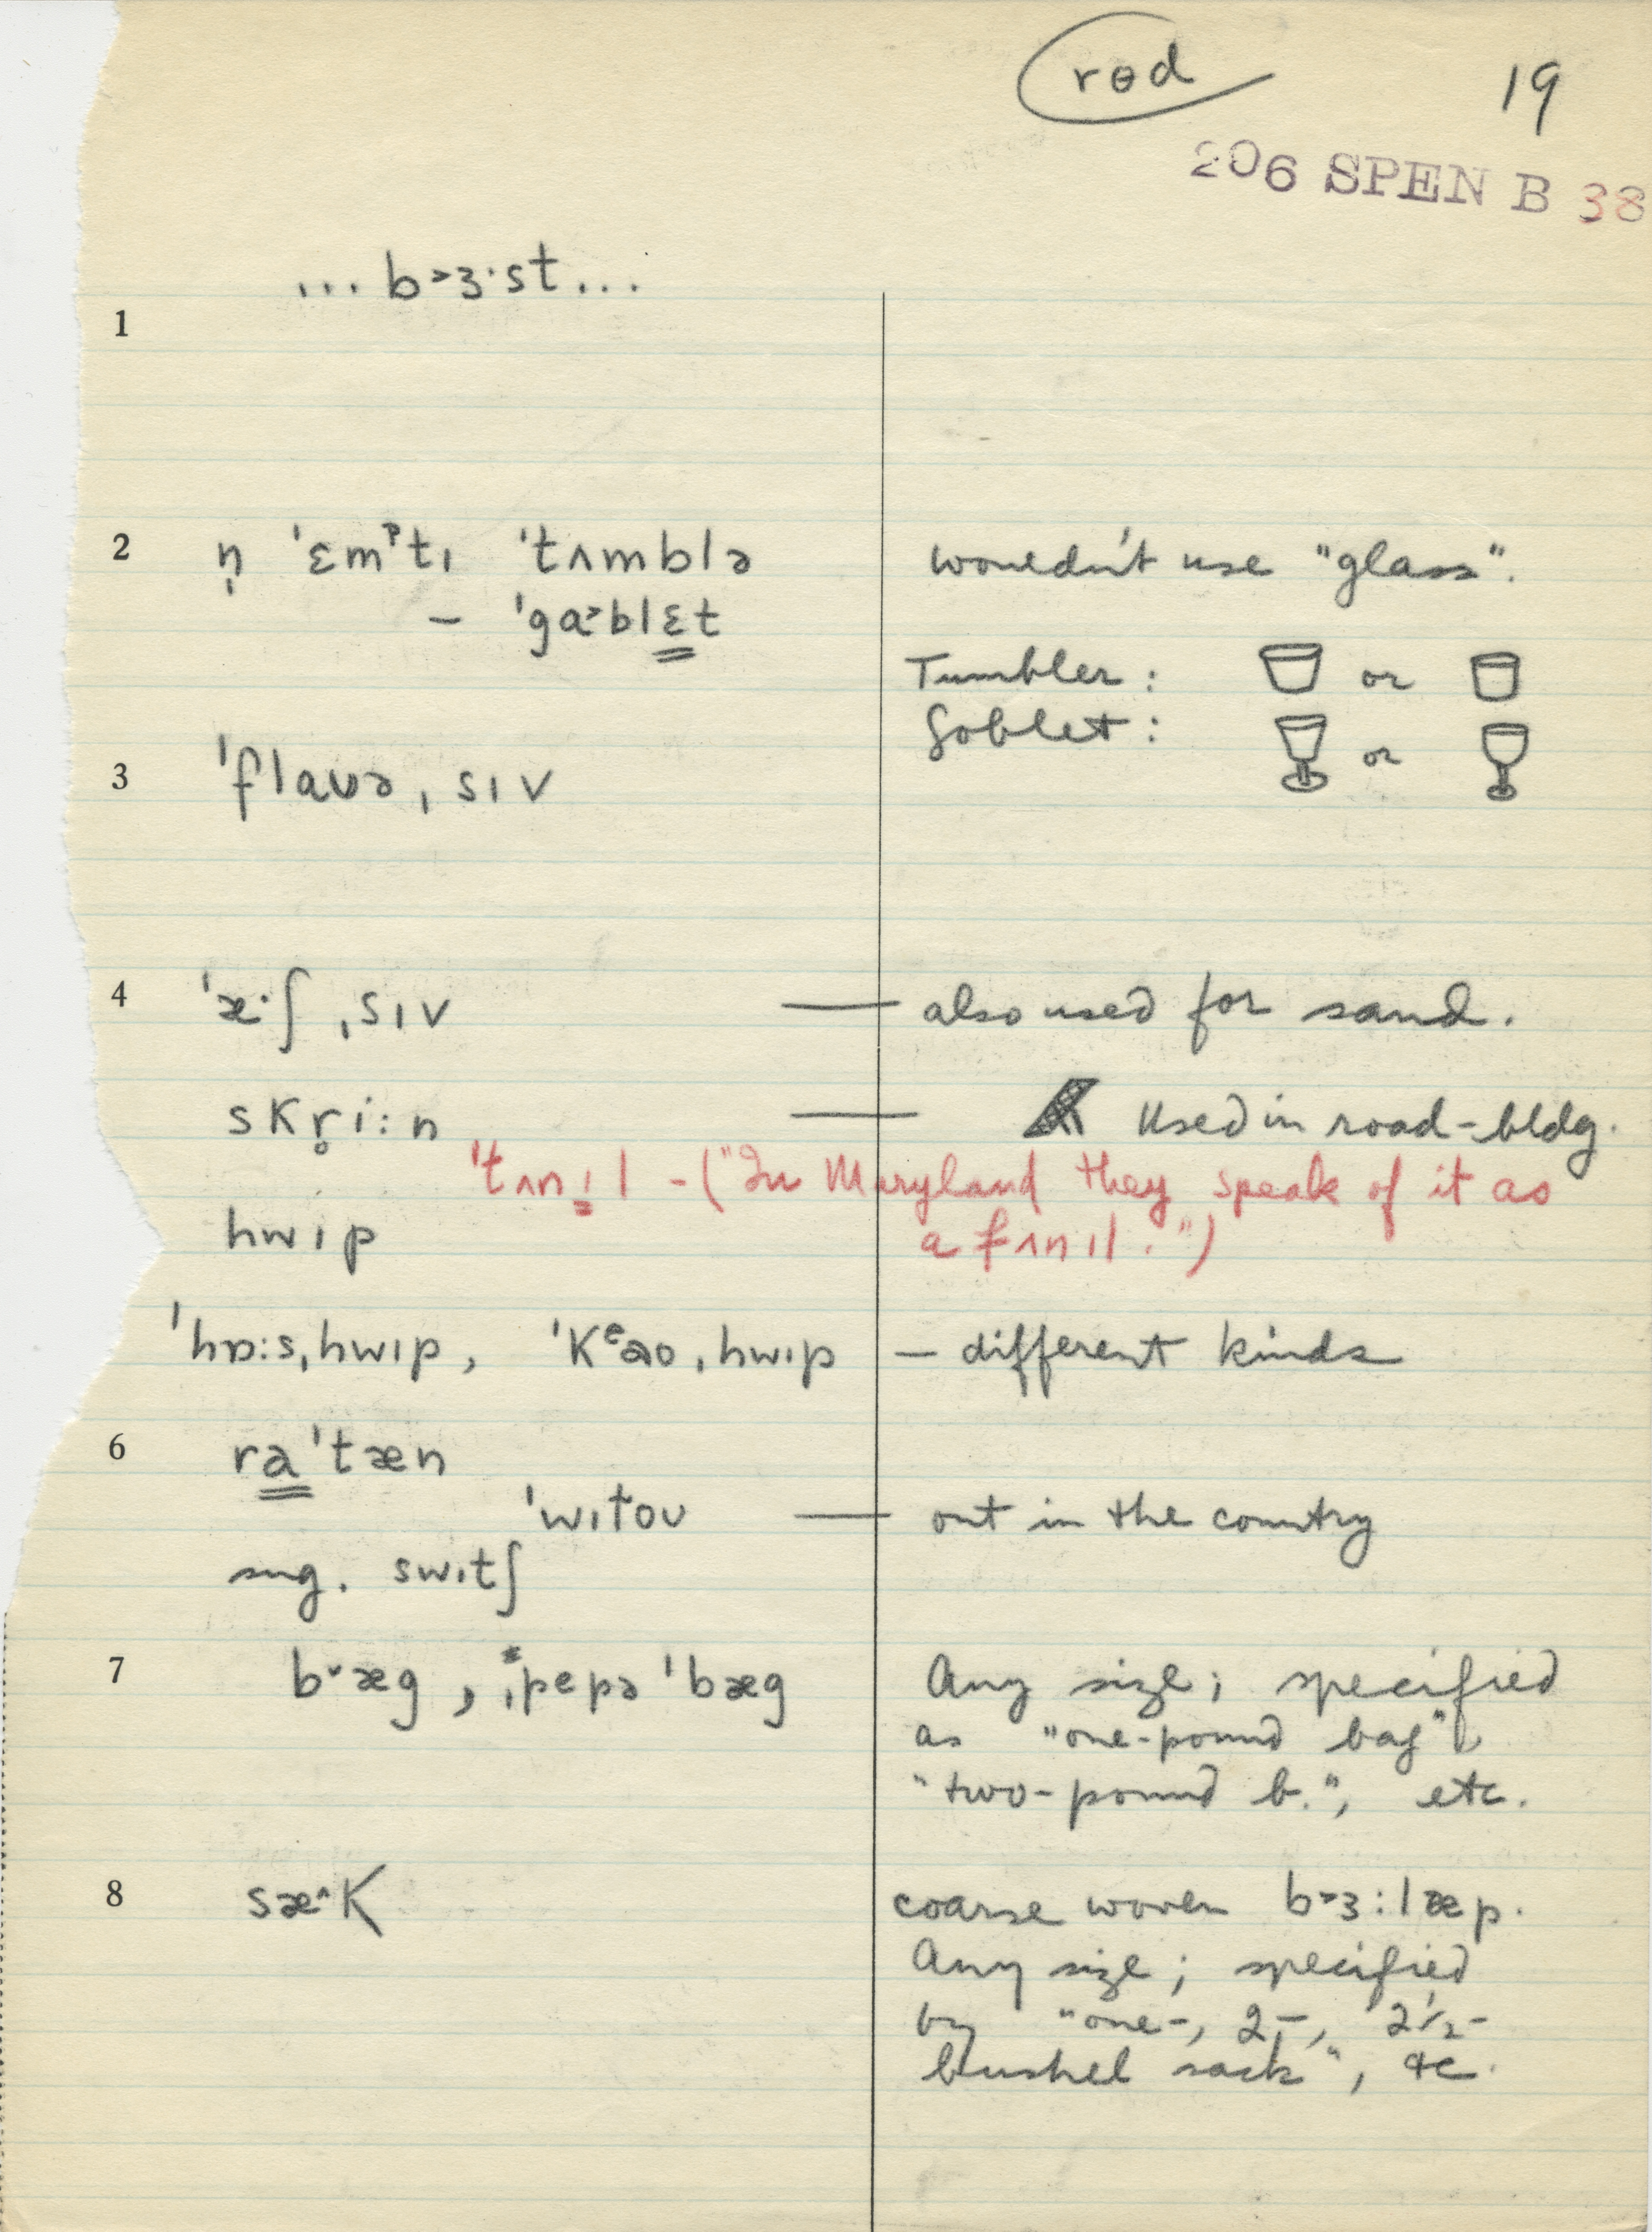 rɵd 19
206 SPEN B 38
... b˃ɜ·st ...
1
2 n̩ ˈɛmᵖtɪ ˈtʌmblə wouldn't use "glass".
– ˈgɑ˃blɛt
Tumbler: or
Goblet: or
3 ˈflaʊə ˌsɪv
4 ˈæ·ʃ ˌsɪv — also used for sand.
skr̥i:n — Used in road-bldg.
ˈtʌnɪl - ("In Maryland they speak of it as
hwɪp a fʌnɪl.")
ˈhɒ:s ˌhwɪp, ˈkᵉaʊ ˌhwɪp – different kinds
6 raˈtæn
ˈwɪtoʊ — out in the country
sug. swɪtʃ
7 b˅æg, ˌpepə ˈbæg Any size; specified
as "one-pound bag",
"two-pound b.", etc.
8 sæ^k coarse woven b˃ɜ:læp.
Any size; specified
by "one-, 2-, 2½-
bushel sack", etc.